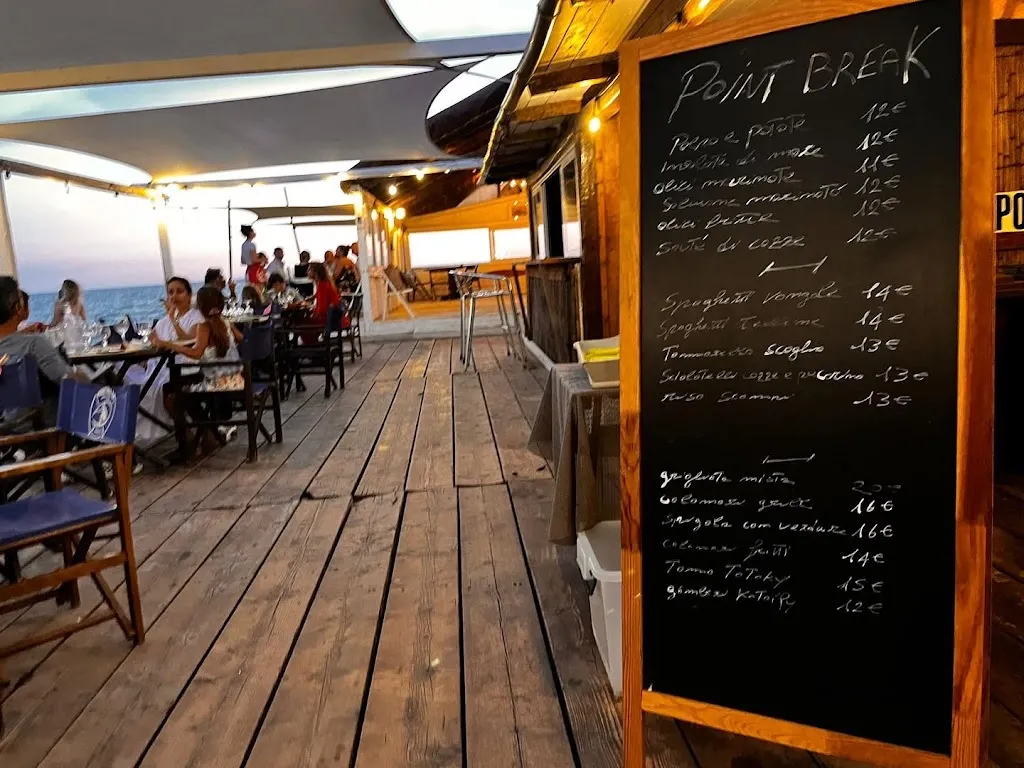 POINT BREAK
Polpo e patate 12€
Insalata di mare 12€
alici marinate 11€
Salmone marinato 12€
alici fritte 12€
Sautè di cozze 12€
Spaghetti vongole 14€
Spaghetti 14€
scoglio 13€
cozze e pecorino 13€
riso scampi 13€
grigliata mista 20€
Calamari grill 16€
Spigola con verdure 16€
calamari fritti 14€
Tonno Tataky 15€
gamberi Kataify 12€
PO